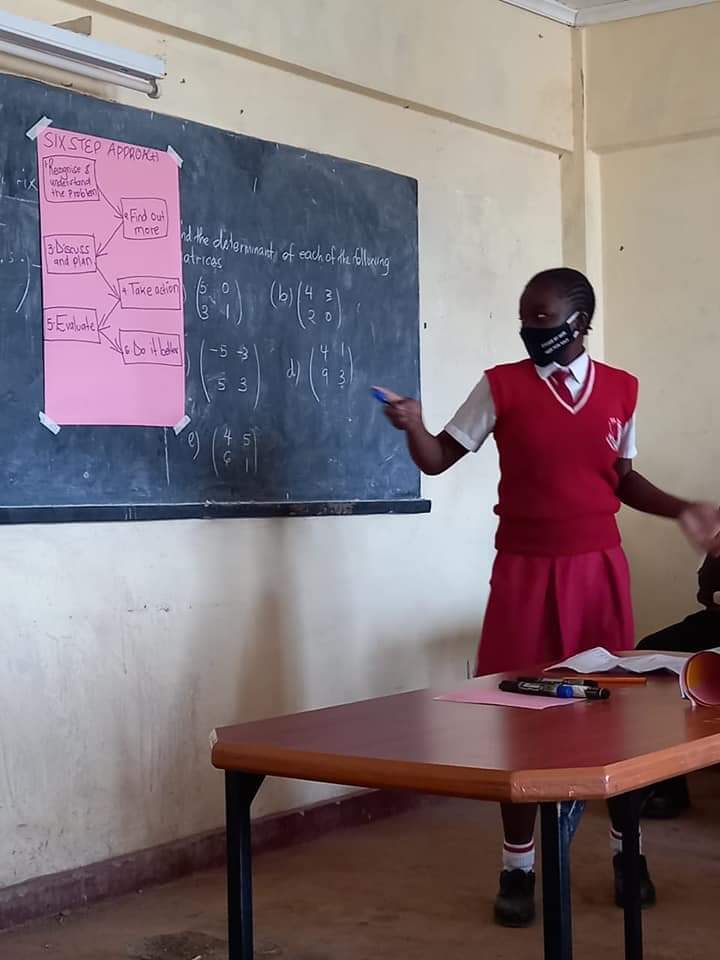 SIX STEP APPROACH
1. Recognise &
understand
the problem
2. Find out
more
3. Discuss
and plan
4. Take action
5. Evaluate
6. Do it better
nd the determinant of each of the following
atrices
5 0
3 1
(b) 4 3
2 0
-5 -3
5 3
d) 4 1
9 3
e) 4 5
6 1